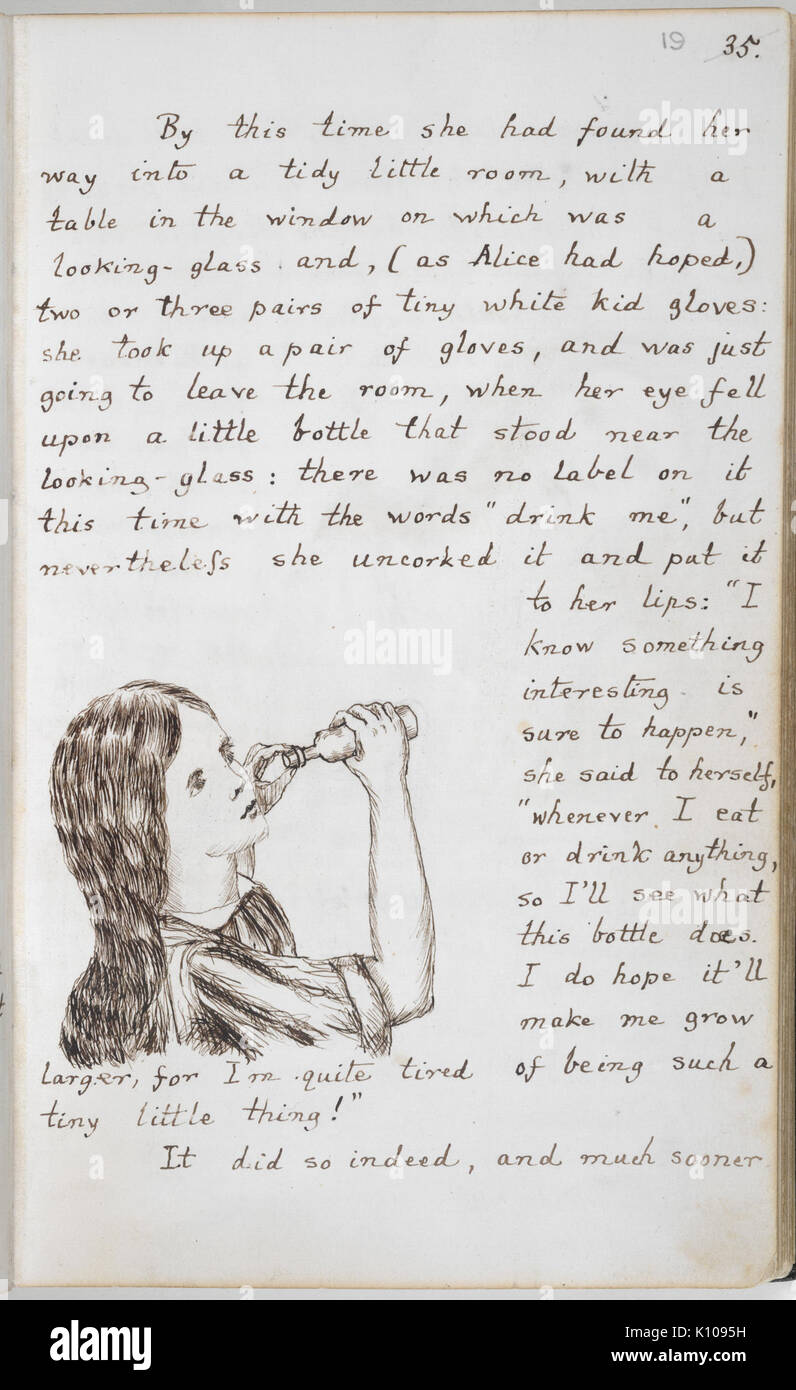 19 35.
By this time she had found her
way into a tidy little room, with a
table in the window on which was a
looking-glass and, (as Alice had hoped,)
two or three pairs of tiny white kid gloves:
she took up a pair of gloves, and was just
going to leave the room, when her eye fell
upon a little bottle that stood near the
looking-glass: there was no label on it
this time with the words "drink me", but
nevertheleſs she uncorked it and put it
to her lips: "I
know something
interesting is
sure to happen,"
she said to herself,
"whenever I eat
or drink anything,
so I'll see what
this bottle does.
I do hope it'll
make me grow
larger, for I'm quite tired of being such a
tiny little thing!"
It did so indeed, and much sooner
alamy
alamy
alamy
alamy
a
alamy
Image ID: K1095H
www.alamy.com